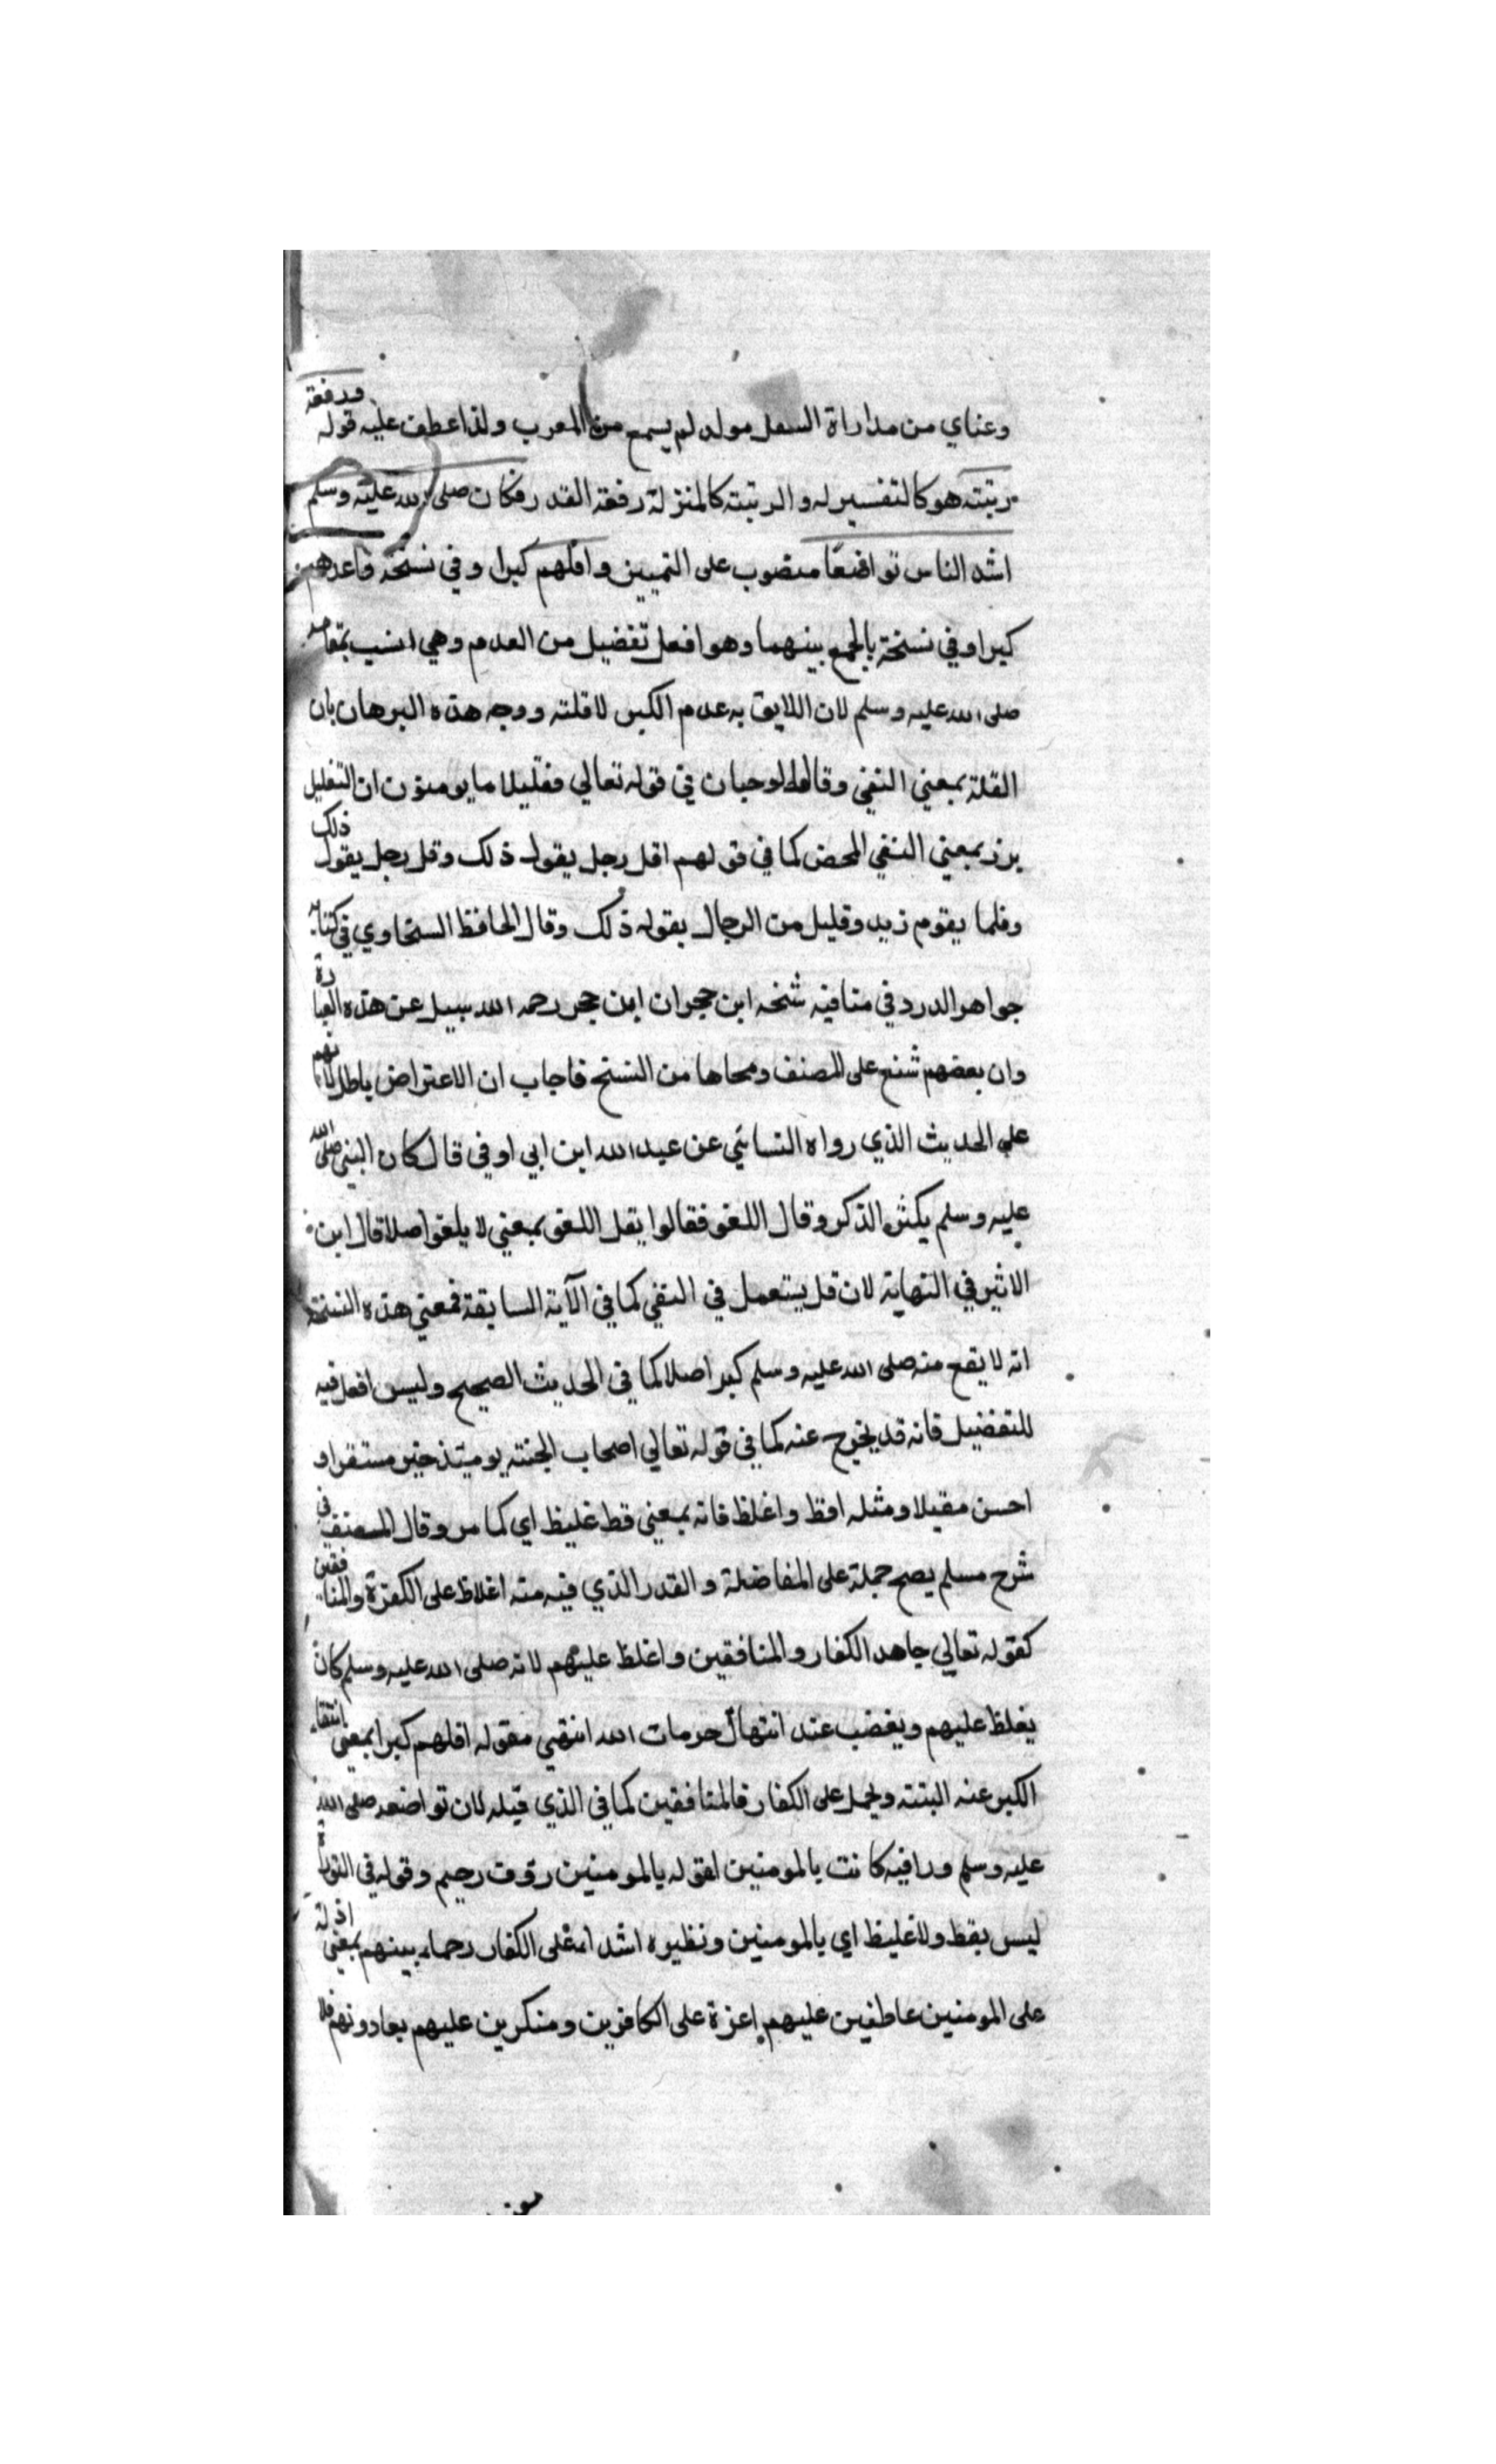 وعناي من مداراة السفل مولد لم يسمع من المعرب ولذا عطف عليه قوله ورفعة
رتبته هو كالتفسير له والرتبته كالمنزلة رفعة القدر فكان صلى الله عليه وسلم
اشد الناس تواضعًا منصوب على التمييز واقلهم كبرا وفي نسخة واعدمهم
كبرا وفي نسخة بالجمع بينهما وهو افعل تفضيل من العدم وهي انسب بمقامه
صلى الله عليه وسلم لان اللايق به عدم الكبر لا قلته ووجه هذه البرهان بان
القلة بمعني النفي وقال ابوحيان في قوله تعالي فقليلا ما يومنون ان التقليل
يرد بمعني النفي المحض كما في قولهم اقل رجل يقول ذلك وقل رجل يقول ذلك
وقلما يقوم زيد وقليل من الرجال يقوله ذلك وقال الحافظ السخاوي في كتابه
جواهر الدرر في مناقبه شخه ابن حجر ان ابن حجر رحمه الله سيل عن هذه العبارة
وان بعضهم شنع على المصنف ومحاها من النسخ فاجاب ان الاعتراض باطل
على الحديث الذي رواه النسائي عن عبد الله ابن ابي اوفي قال كان النبي صلى الله
عليه وسلم يكثر الذكر وقال اللغو فقالوا يقل اللغو بمعني لا يلغو اصلا قال ابن
الاثير في النهاية لان قل يستعمل في النفي كما في الآية السابقة فمعني هذه النسخة
انه لا يقع منه صلى الله عليه وسلم كبر اصلا كما في الحديث الصحيح وليس افعل فيه
للتفضيل فانه قد يخرج عنه كما في قوله تعالي اصحاب الجنته يوميئذ خير مستقرا و
احسن مقيلا ومثله افظ واغلظ فانه بمعني فظ غليظ اي كما مر وقال المصنف في
شرح مسلم يصح حملة على المفاضلة والقدر الذي فيه منه اغلاظ على الكفرة والمنافقين
كقوله تعالي جاهد الكفار والمنافقين واغلظ عليهم لانه صلى الله عليه وسلم كان
يغلظ عليهم ويغضب عند انتهاك حرمات الله انتهي فقوله اقلهم كبرا بمعني انتفاء
الكبر عنه البتته ويحمل على الكفار فالمنافقين كما في الذي قبله لان تواضعه صلى الله
عليه وسلم ورافيه كانت بالمومنين لقوله بالمومنين رؤف رحيم وقوله في التوراة
ليس بفظ ولا غليظ اي بالمومنين ونظيره اشداء على الكفار رحماء بينهم بمعني اذلة
على المومنين عاطفين عليهم اعزة على الكافرين ومنكرين عليهم يعادونهم فلا